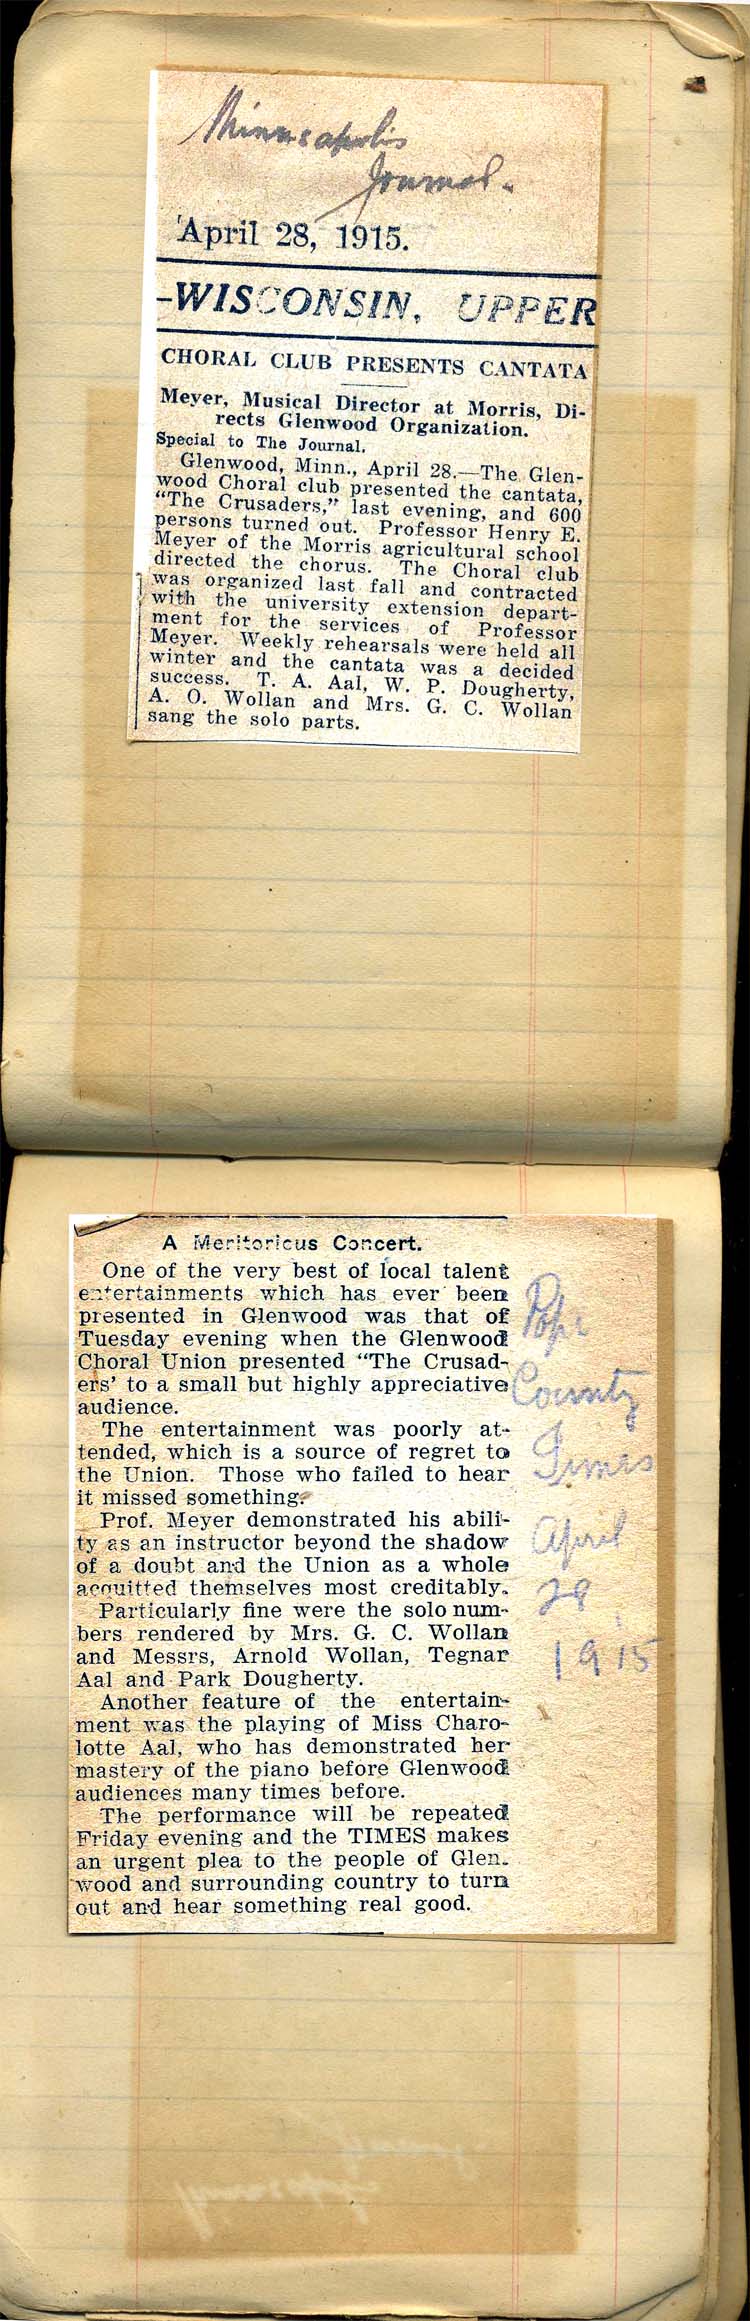 Minneapolis
Journal.
April 28, 1915.
-WISCONSIN, UPPER
CHORAL CLUB PRESENTS CANTATA
Meyer, Musical Director at Morris, Di-
rects Glenwood Organization.
Special to The Journal.
Glenwood, Minn., April 28.—The Glen-
wood Choral club presented the cantata,
"The Crusaders," last evening, and 600
persons turned out. Professor Henry E.
Meyer of the Morris agricultural school
directed the chorus. The Choral club
was organized last fall and contracted
with the university extension depart-
ment for the services of Professor
Meyer. Weekly rehearsals were held all
winter and the cantata was a decided
success. T. A. Aal, W. P. Dougherty,
A. O. Wollan and Mrs. G. C. Wollan
sang the solo parts.
A Meritoricus Concert.
One of the very best of local talent
entertainments which has ever been
presented in Glenwood was that of
Tuesday evening when the Glenwood
Choral Union presented "The Crusad-
ers' to a small but highly appreciative
audience.
The entertainment was poorly at-
tended, which is a source of regret to
the Union. Those who failed to hear
it missed something.
Prof. Meyer demonstrated his abili-
ty as an instructor beyond the shadow
of a doubt and the Union as a whole
acquitted themselves most creditably.
Particularly fine were the solo num-
bers rendered by Mrs. G. C. Wollan
and Messrs, Arnold Wollan, Tegnar
Aal and Park Dougherty.
Another feature of the entertain-
ment was the playing of Miss Charo-
lotte Aal, who has demonstrated her
mastery of the piano before Glenwood
audiences many times before.
The performance will be repeated
Friday evening and the TIMES makes
an urgent plea to the people of Glen-
wood and surrounding country to turn
out and hear something real good.
Pope
County
Times
April
28
1915